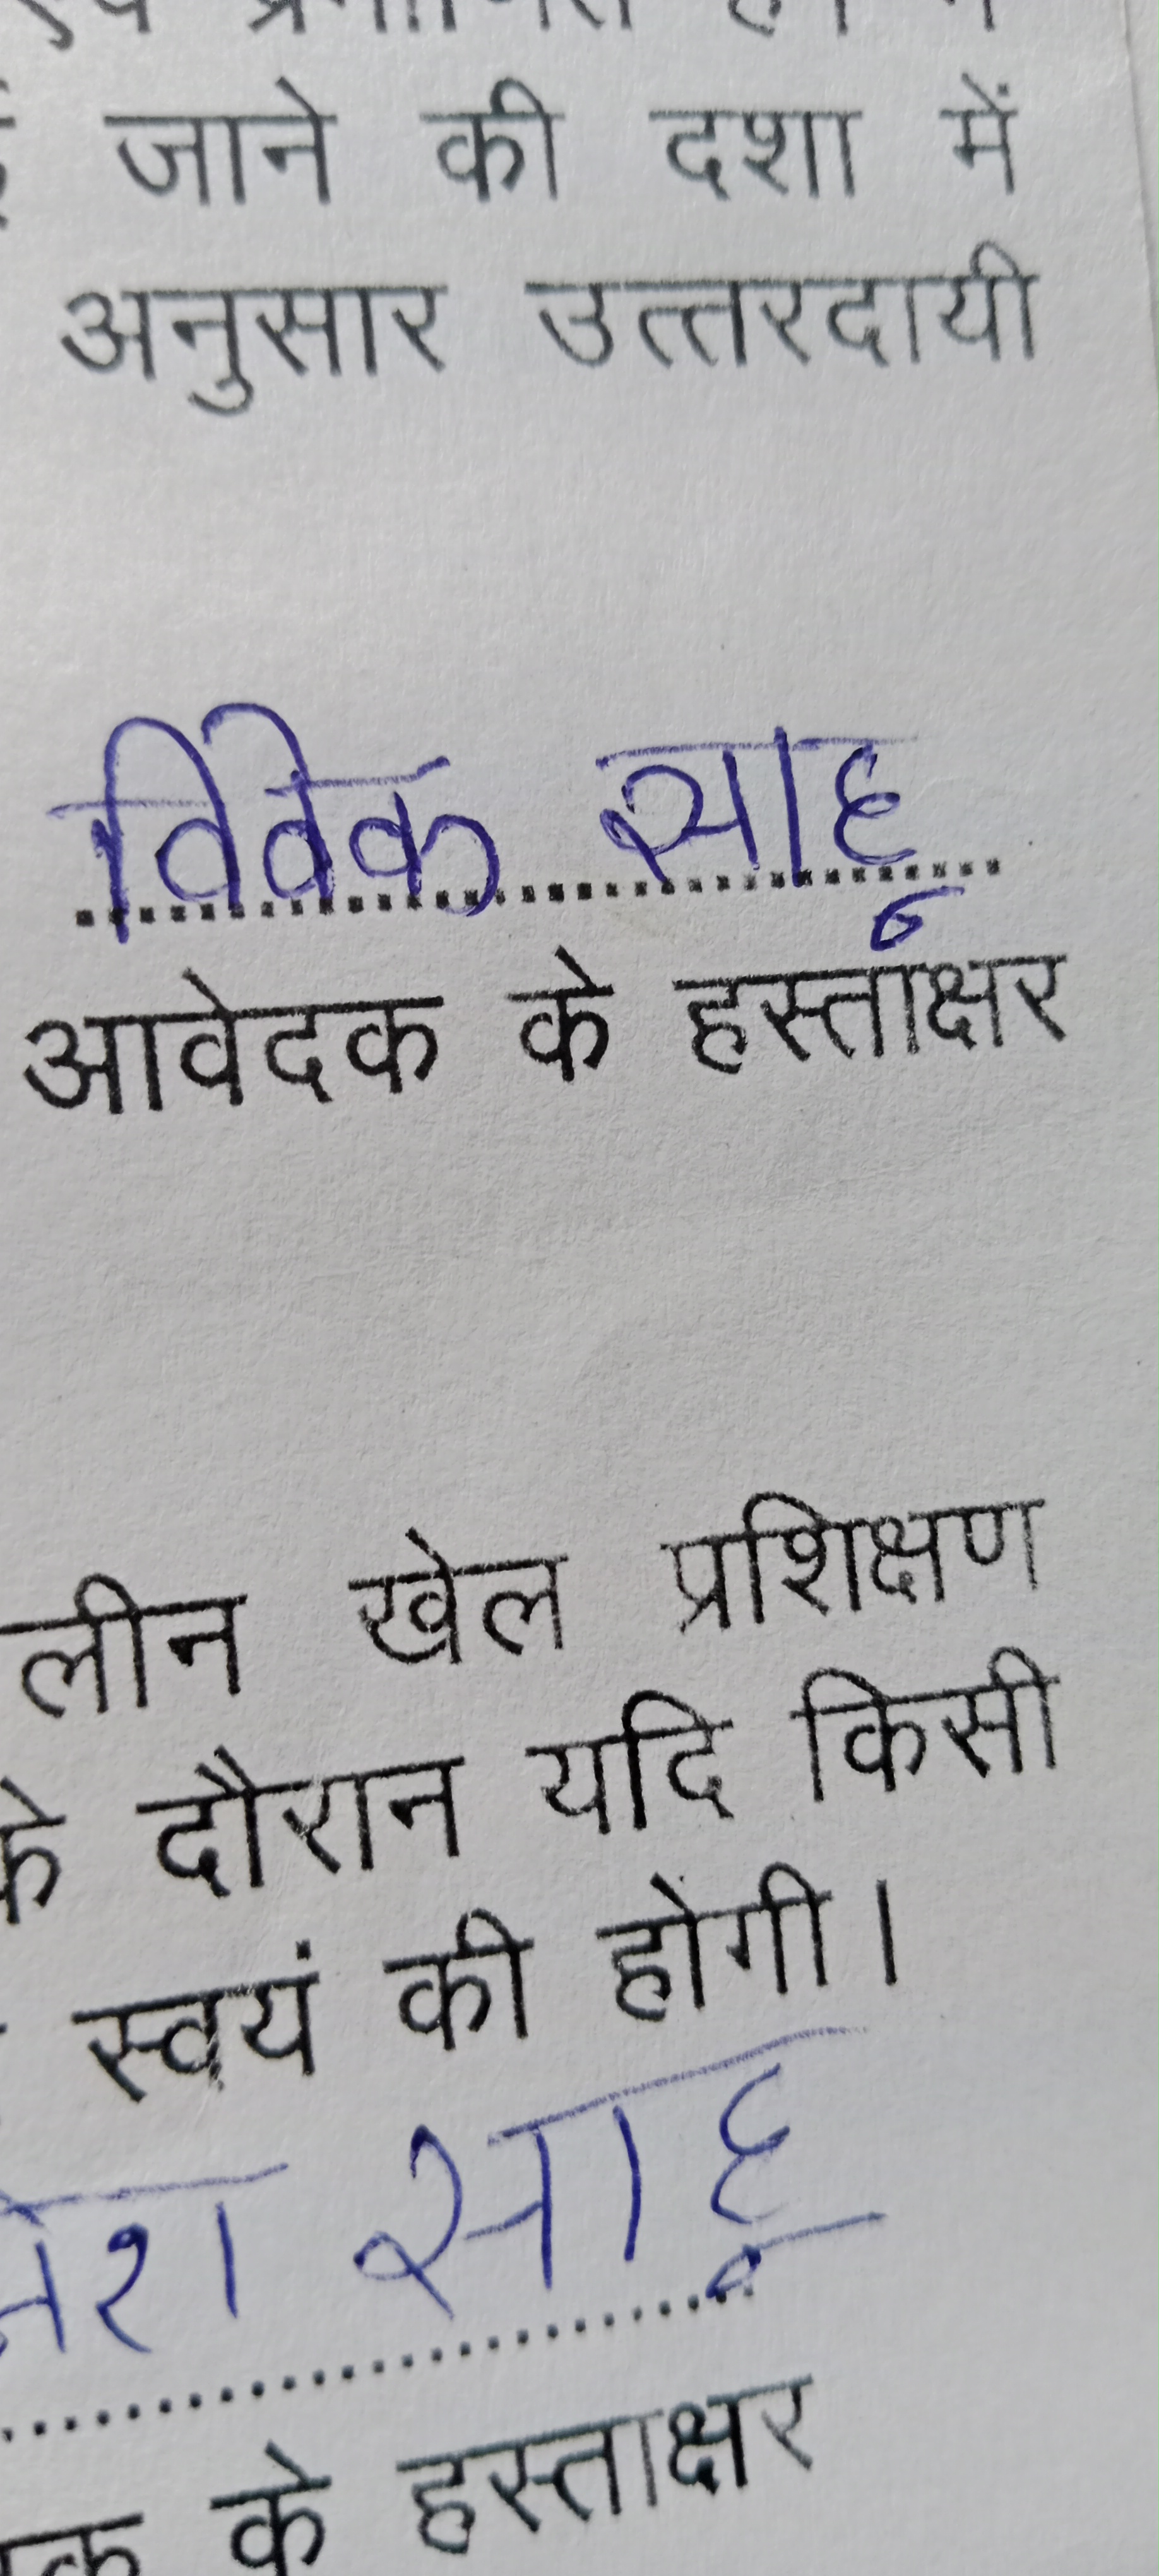 जाने की दशा में
अनुसार उत्तरदायी
विवेक साहू
आवेदक के हस्ताक्षर
लीन खेल प्रशिक्षण
के दौरान यदि किसी
स्वयं की होगी।
साहू
के हस्ताक्षर